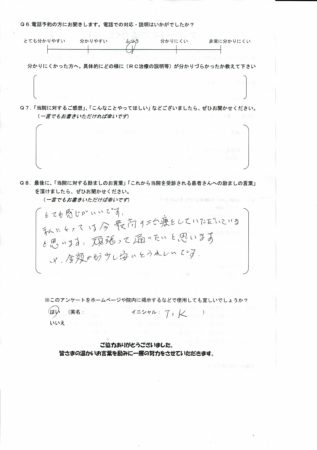 Q6.電話予約の方にお聞きします。電話での対応・説明はいかがでしたか？
とても分かりやすい　分かりやすい　ふつう　分かりにくい　非常に分かりにくい
分かりにくかった方へ。具体的にどの様に（RC治療の説明等）が分かりづらかったか教えて下さい
Q7.「当院に対するご感想」、「こんなことやってほしい」などございましたら、ぜひお聞かせください。
（一言でもお書きいただければ幸いです）
Q8.最後に、「当院に対する励ましのお言葉」「これから当院を受診される患者さんへの励ましの言葉」
を頂けましたら、ぜひお聞かせください。
（一言でもお書きいただけば幸いです）
とても感じがいいです。
私にとっては今 最高の治療をしていただいている
と思います。頑張って通いたいと思います
もう少し安いとうれしいです
※このアンケートをホームページや院内に掲示するなどで使用しても宜しいでしょうか？
はい（実名：　イニシャル：T.K　）
いいえ
ご協力ありがとうございました。
皆さまの温かいお言葉を励みに一層の努力をさせていただきます。